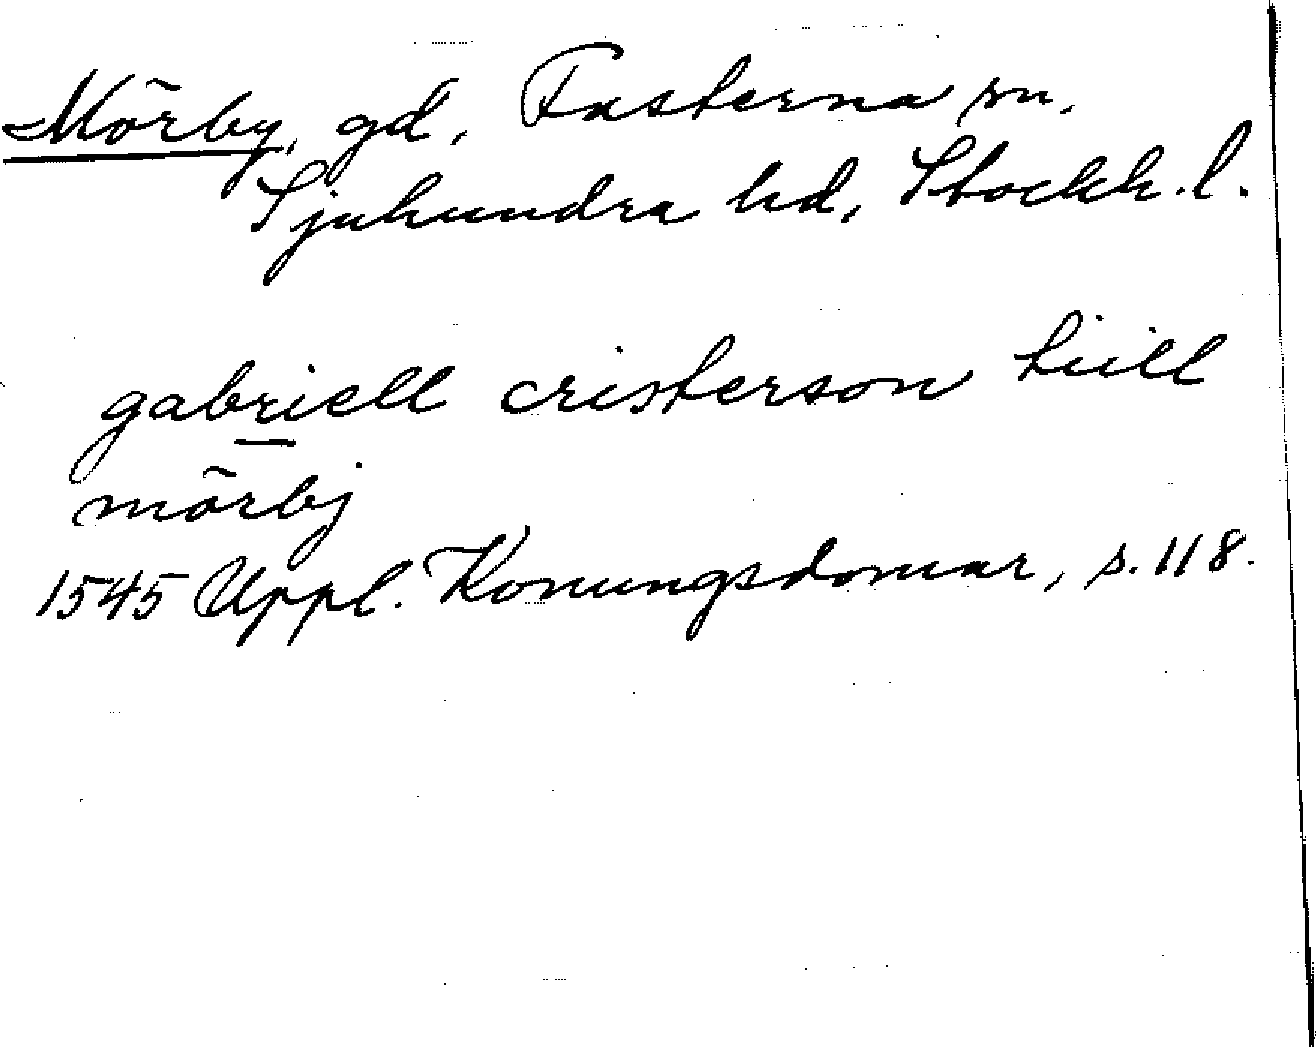 Mörby, gd, Fasterna sn.
Sjuhundra hd, Stockh. l.
gabriell cristerson tiill
mörbj
1545 Uppl. Konungsdomar, s. 118.